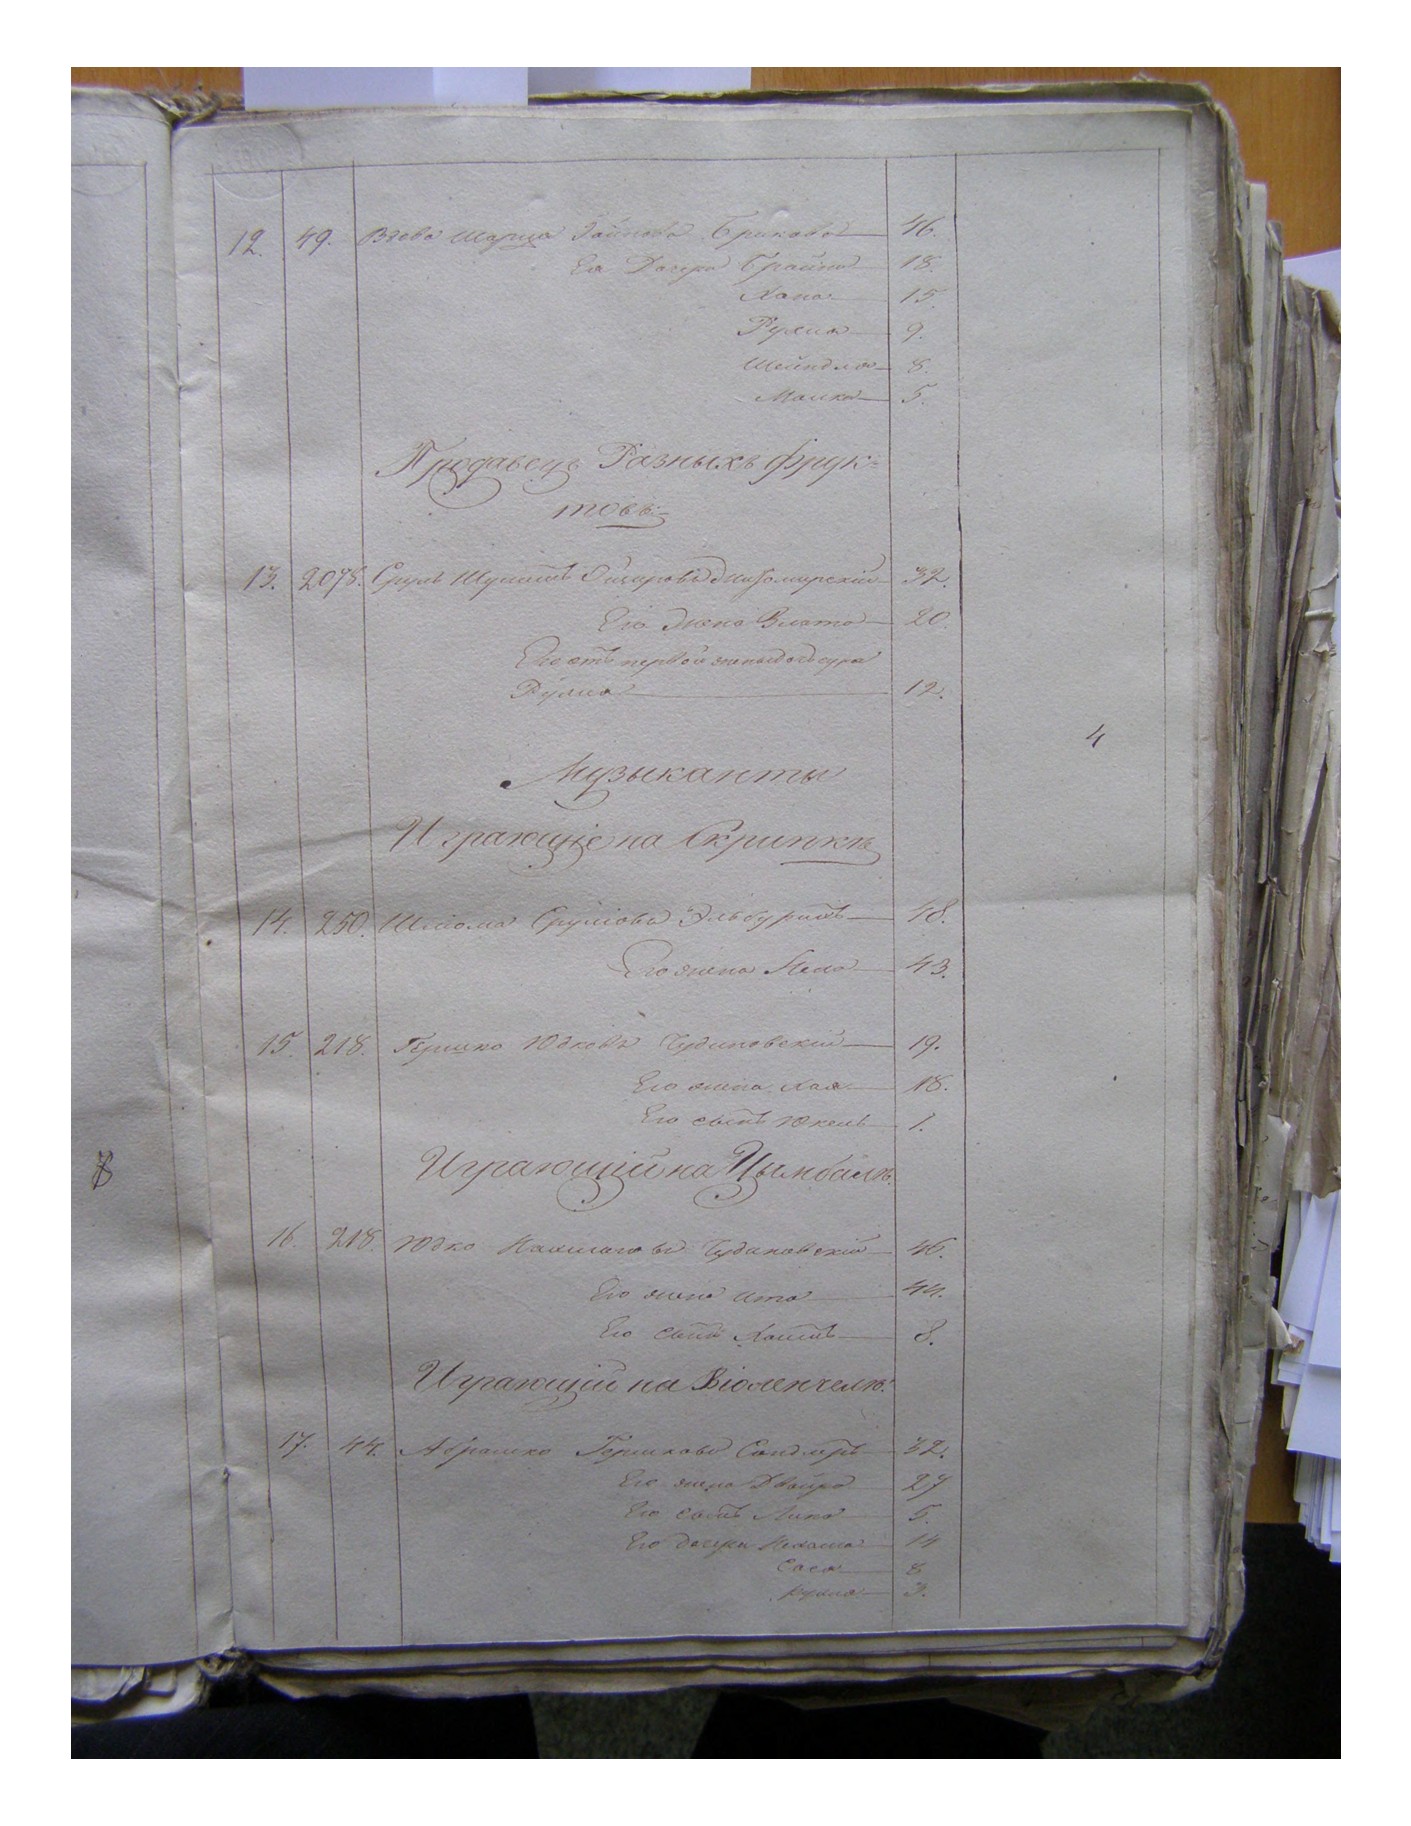 12. 49. Вдова Марца Брикова 46.
Ея Дочери Брайна 18.
Хана 15.
Рухля 9.
Шейндля 8.
Малка 5.
Продавецъ Разныхъ фрук=
товъ
13. 2078. Сруль 32.
Его Жена Злата 20.
Его отъ первой жены дочь
Рухля 12.
4
Музыканты
Играющіе на Скрипкѣ
14. 250. Шлиома Сруліовъ 48.
Его жена 43.
15. 218. Гершко Юдковъ Чудновскій 19.
Его жена Хая 18.
Его сынъ Юкель 1.
Играющій на Цымбалѣ.
16. 218. Юдко Чудновскій 46.
Его жена Ита 44.
Его сынъ 8.
Играющій на Віоленчелѣ.
17. 44. Абрамко Гершковъ 32.
Его жена Двойра 27
Его сынъ Липа 5.
Его дочери 14
Сося 8
Рухля 3.